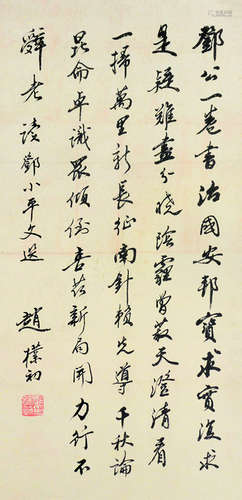 鄧公一卷書治國安邦寶求實復求
是疑難盡分曉陰霾曾蔽天澄清看
一掃萬里新長征南針賴先導千秋論
昆侖卓識眾傾倒喜茲新局開力行不
辭老讀鄧小平文選
趙樸初